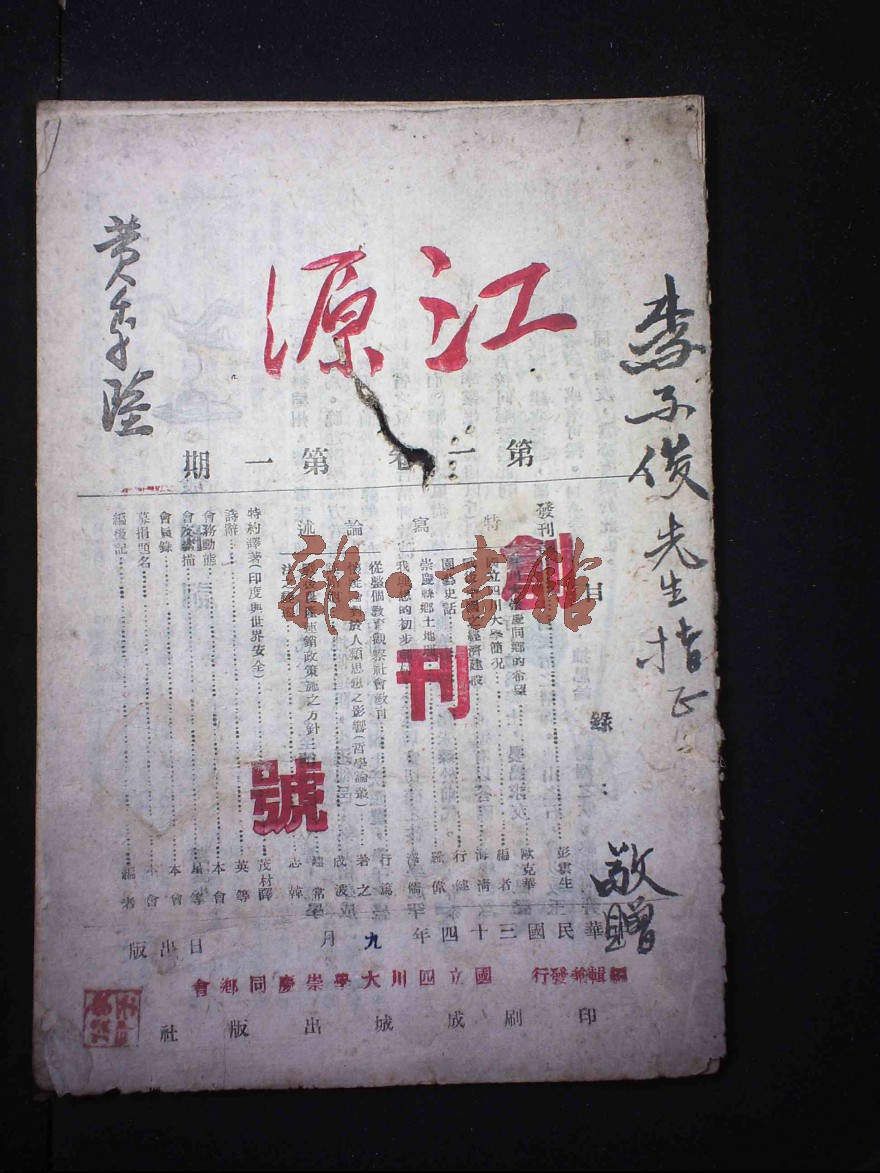 李子俊先生指正
敬贈
黃季陸
江源
第一卷第一期
創刊號
目錄
發刊
彭雲生
慶同鄉的希望
歐克華
特寫
國立四川大學簡況
編者
經濟建設
海清
園藝史話
行健
崇慶縣鄉土地理
我
的初步
論述
從整個教育觀察社會教育
行篤
於人類思想之影響(哲學論叢)
若之
成波
連鎖政策施之方針
建常
志韓
特約譯著(印度與世界安全)
茂材譯
詩辭
英等
會務動態
本會
會友素描
星等
會員錄
本會
募捐題名
本會
編後記
編者
華民國三十四年九月 日出版
編輯兼發行 國立四川大學崇慶同鄉會
印刷 成城出版社
雜·書館